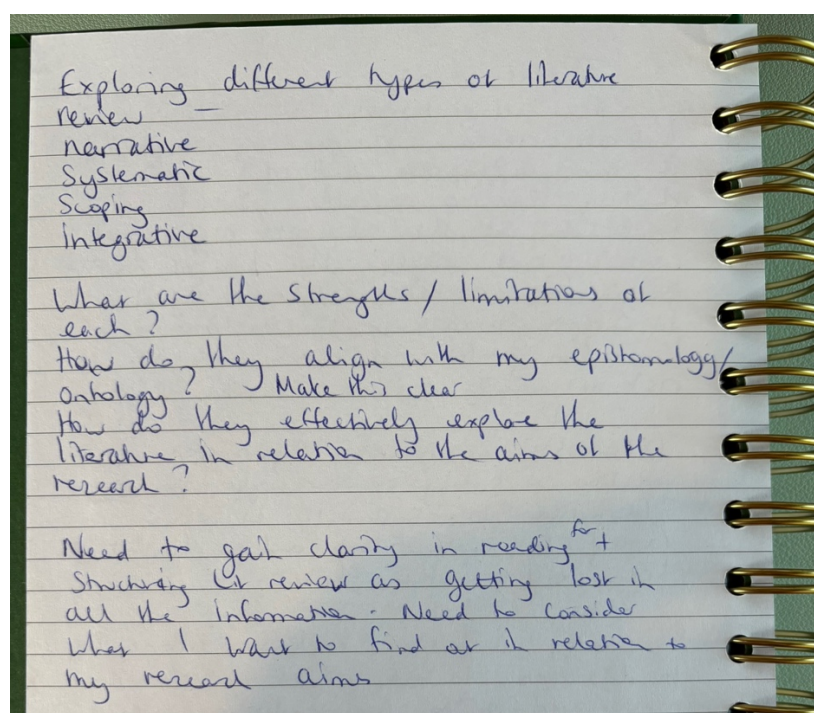 Exploring different types of literature
review –
narrative
Systematic
Scoping
integrative
What are the strengths / limitations of
each?
How do they align with my epistomology/
Ontology? Make this clear
How do they effectively explore the
literature in relation to the aims of the
research?
Need to gain clarity in reading for +
Structuring lit review as getting lost in
all the information. Need to consider
what I want to find out in relation to
my research aims